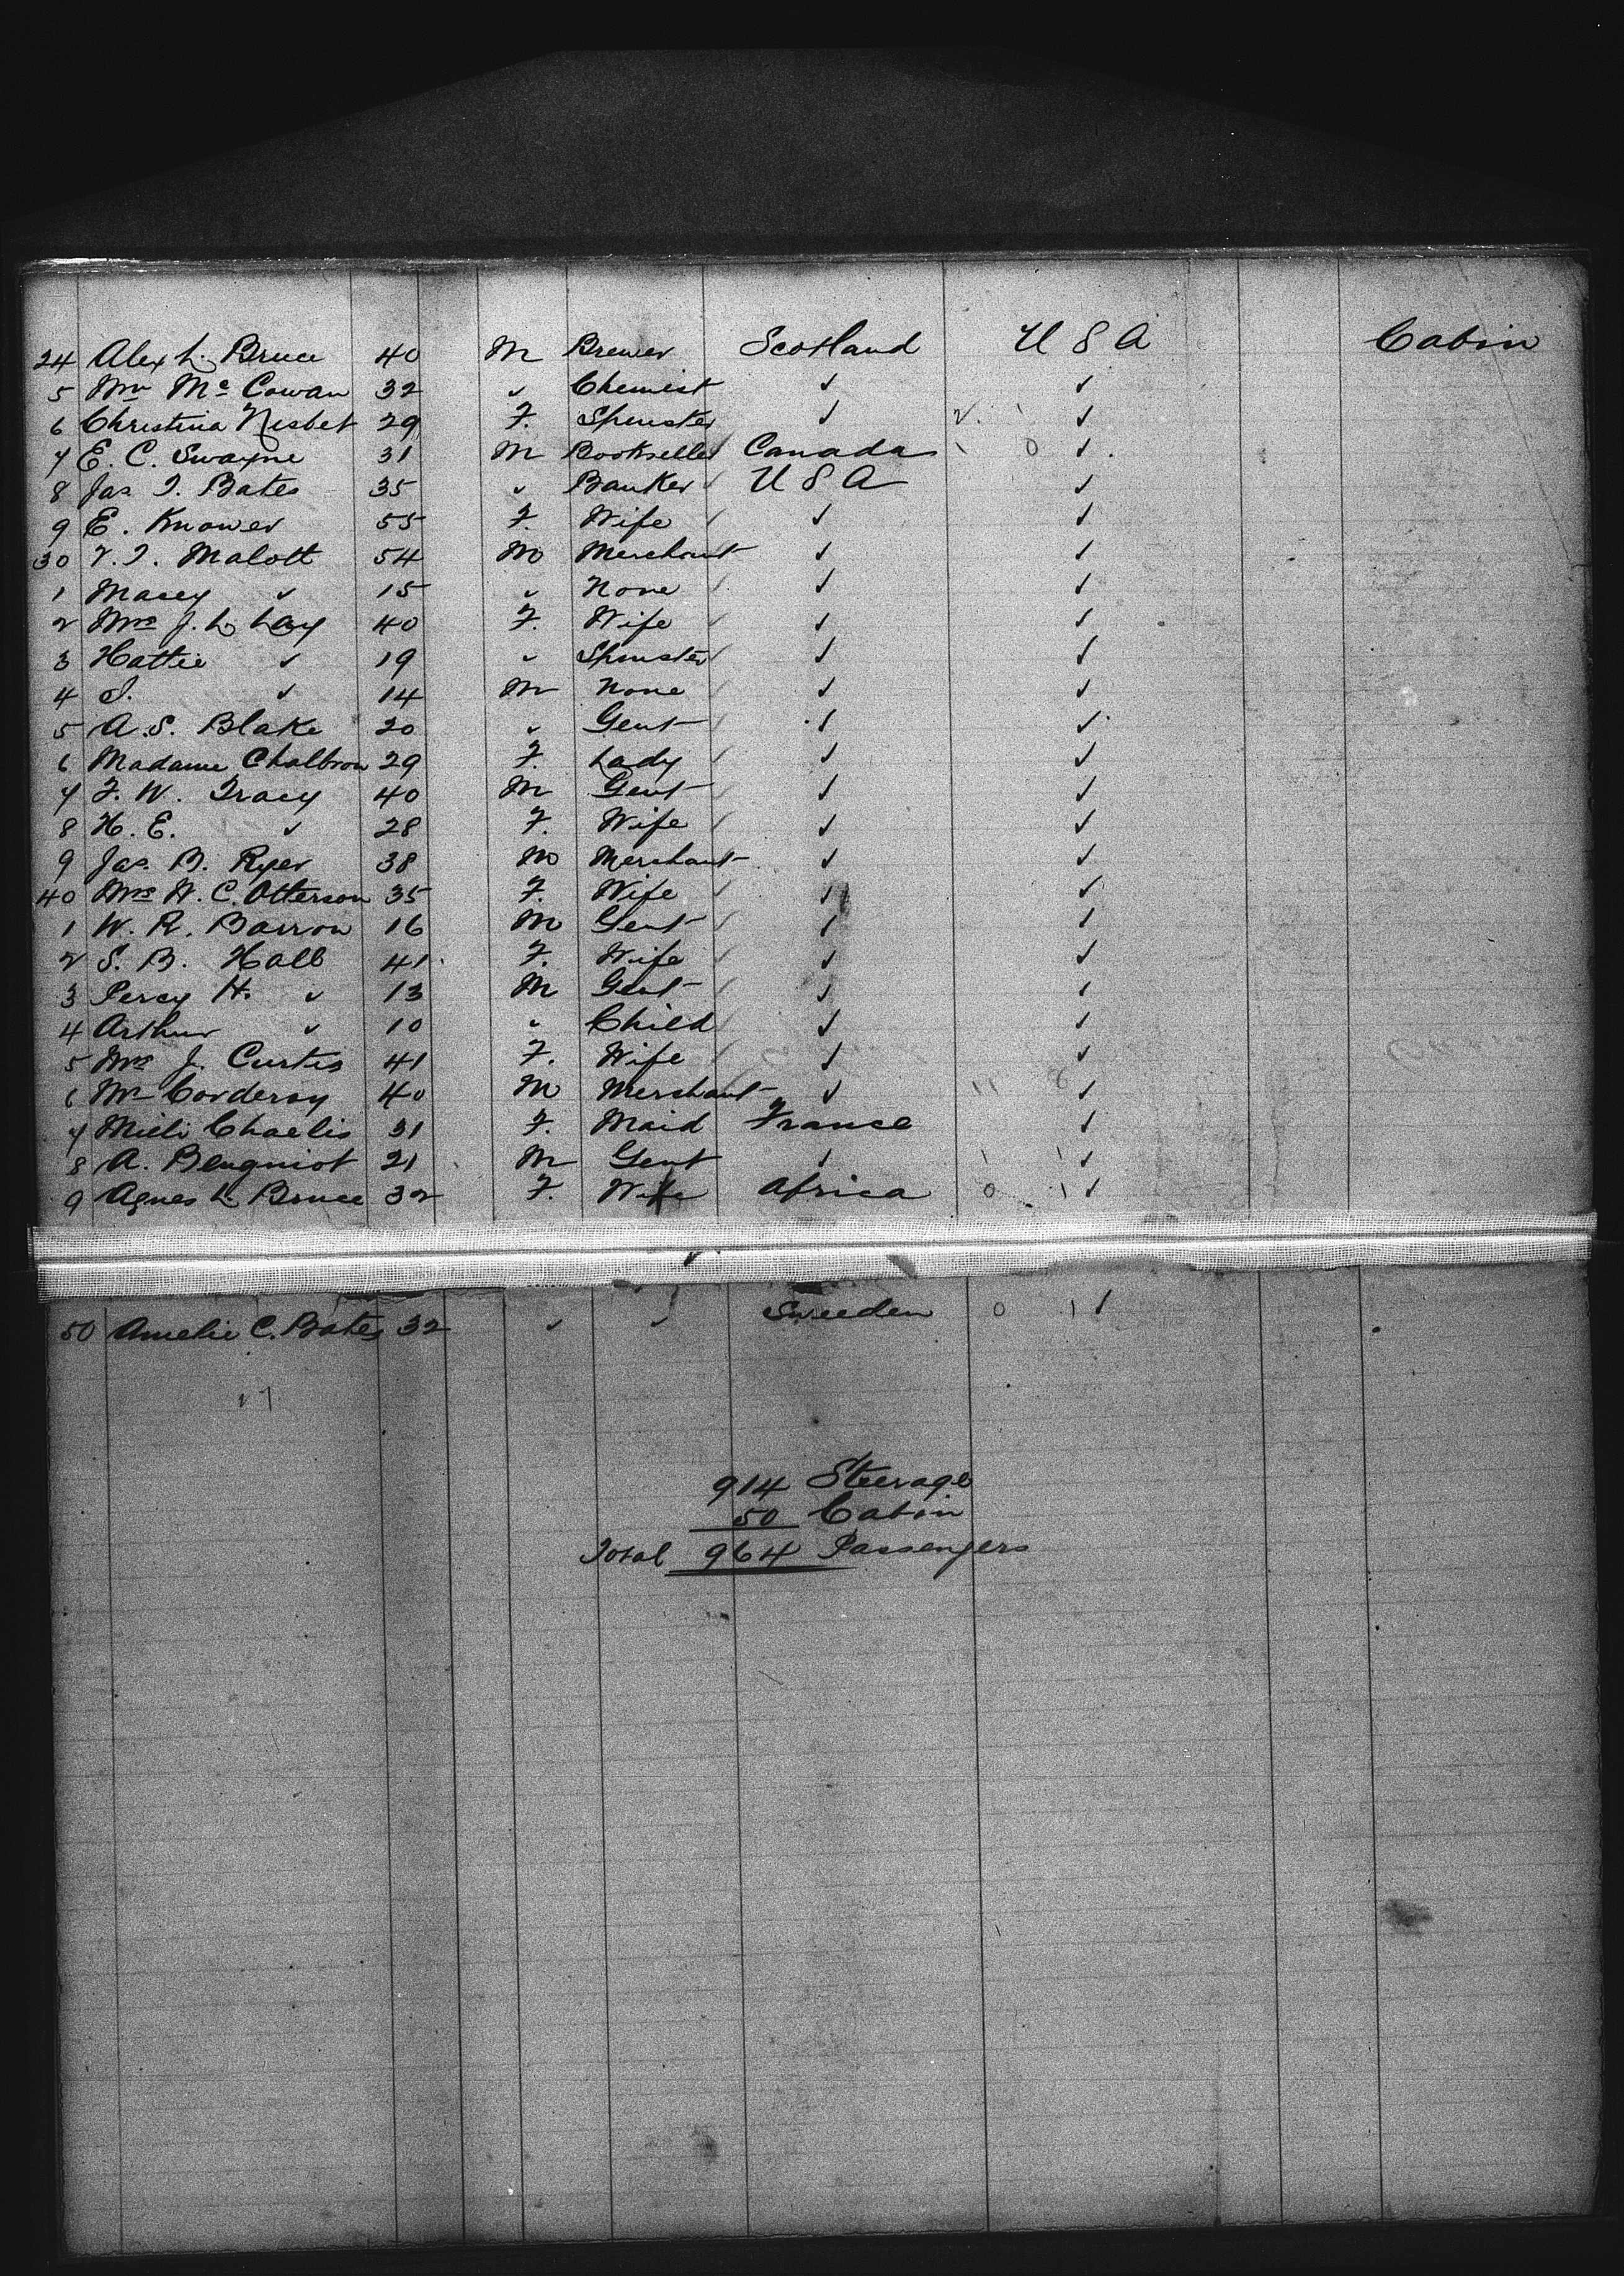 24 Alex L. Bruce 40 M Brewer Scotland U S A Cabin
5 Wm Mc Cowan 32 ✓ Chemist ✓ ✓
6 Christina Nisbet 29 F. Spinster ✓ ✓
7 E. C. Swayne 31 M Bookseller Canada ✓
8 Jas. T. Bates 35 ✓ Banker U S A ✓
9 E. Knower 55 F. Wife ✓ ✓
30 V. T. Malott 54 M Merchant ✓ ✓
1 Macey ✓ 15 ✓ None ✓ ✓
2 Mrs J. L. Lay 40 F. Wife ✓ ✓
3 Hattie ✓ 19 ✓ Spinster ✓ ✓
4 ✓ 14 M None ✓ ✓
5 A. S. Blake 20 ✓ Gent ✓ ✓
6 Madame Chalbron 29 F. Lady ✓ ✓
7 F. W. Tracy 40 M Gent ✓ ✓
8 H. E. ✓ 28 F. Wife ✓ ✓
9 Jas. B. Ryer 38 M Merchant ✓ ✓
40 Mrs W. C. Otterson 35 F. Wife ✓ ✓
1 W. R. Barron 16 M Gent ✓ ✓
2 S. B. Hall 41 F. Wife ✓ ✓
3 Percy H. ✓ 13 M Gent ✓ ✓
4 Arthur ✓ 10 ✓ Child ✓ ✓
5 Mrs J. Curtis 41 F. Wife ✓ ✓
6 Mr Corderoy 40 M Merchant ✓ ✓
7 Milli 31 F. Maid France ✓
8 A. Beugniot 21 M Gent ✓ ✓
9 Agnes L. Bruce 32 F. Wife Africa ✓
50 Amelie C. Bates 32 ✓ ✓ Sweeden ✓
914 Steerage
50 Cabin
Total 964 Passengers